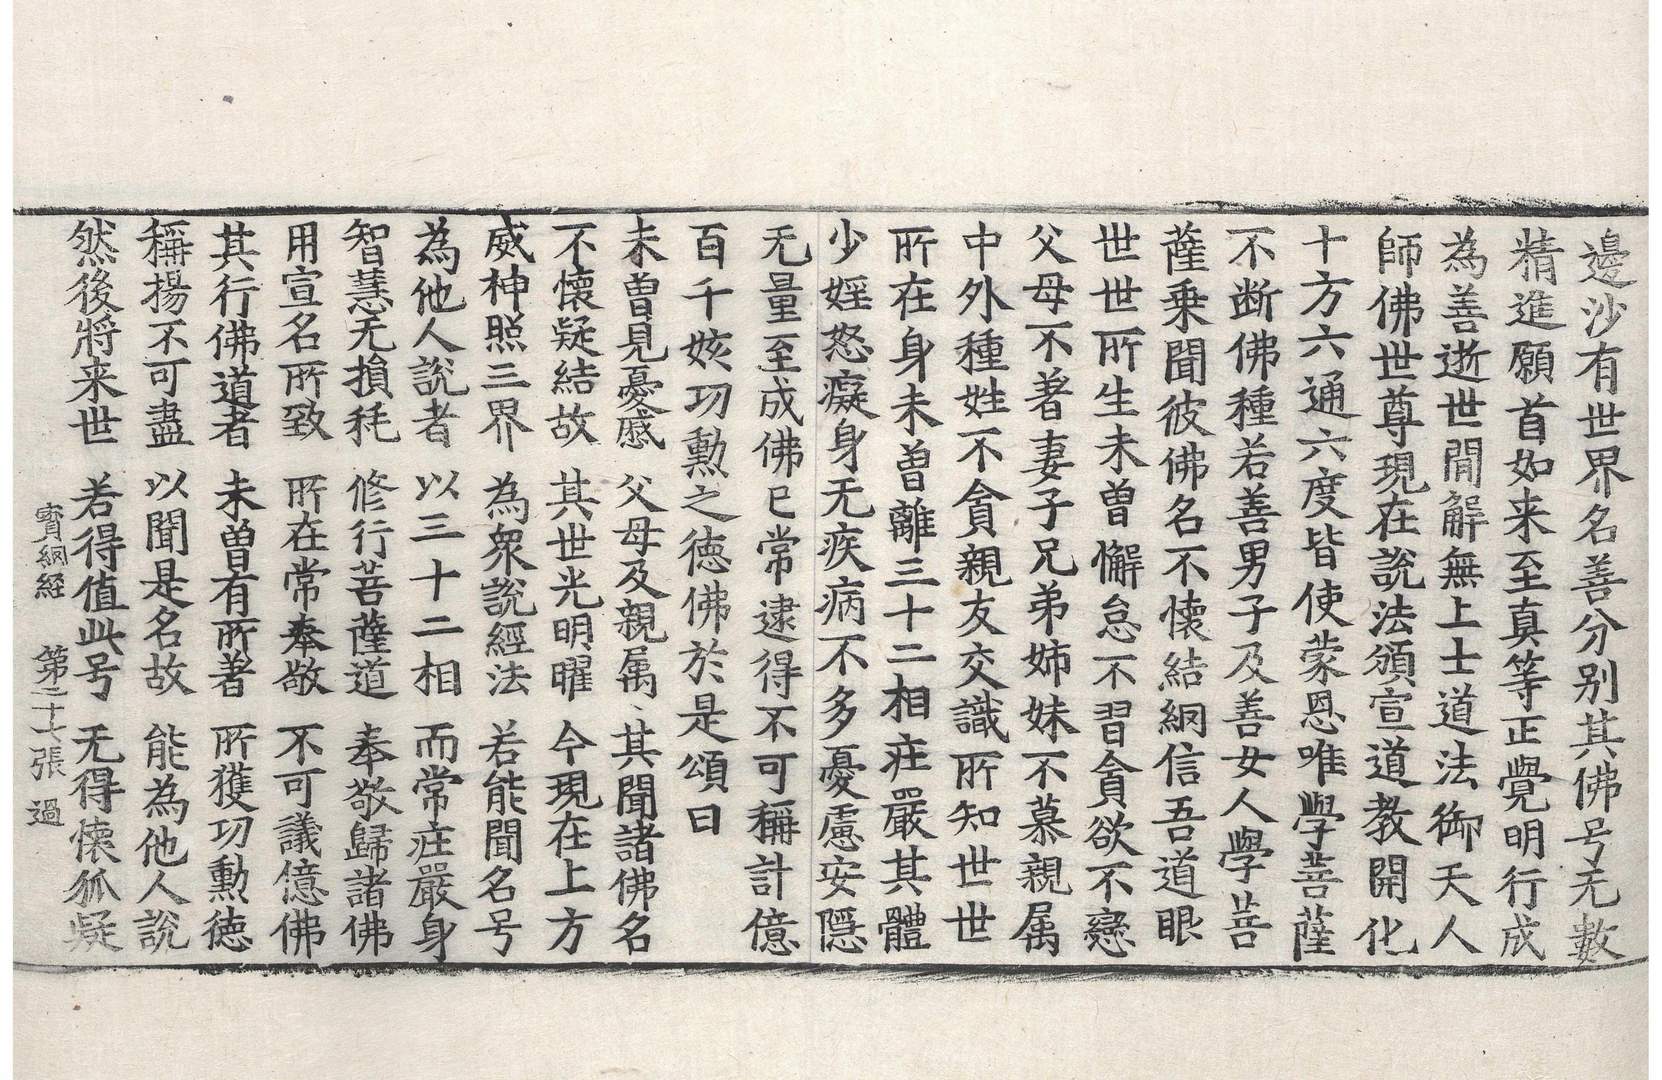 邊沙有世界名善分別其佛号无數
精進願首如来至真等正覺明行成
為善逝世閒解無上士道法御天人
師佛世尊現在說法頒宣道教開化
十方六通六度皆使蒙恩唯學菩薩
不断佛種若善男子及善女人學菩
薩乗聞彼佛名不懷結網信吾道眼
世世所生未曾懈怠不習貪欲不戀
父母不著妻子兄弟姉妹不慕親属
中外種姓不貪親友交識所知世世
所在身未曾離三十二相莊嚴其體
少婬怒癡身无疾病不多憂慮安隱
无量至成佛已常逮得不可稱計億
百千姟功勲之德佛於是頌曰
未曾見憂慼 父母及親属 其聞諸佛名
不懷疑結故 其世光明曜 今現在上方
威神照三界 為衆說經法 若能聞名号
為他人說者 以三十二相 而常莊嚴身
智慧无損耗 修行菩薩道 奉敬歸諸佛
用宣名所致 所在常奉敬 不可議億佛
其行佛道者 未曾有所著 所獲功勲徳
稱揚不可盡 以聞是名故 能為他人說
然後將来世 若得值此号 无得懐狐疑
寳網經 第二十七張 過